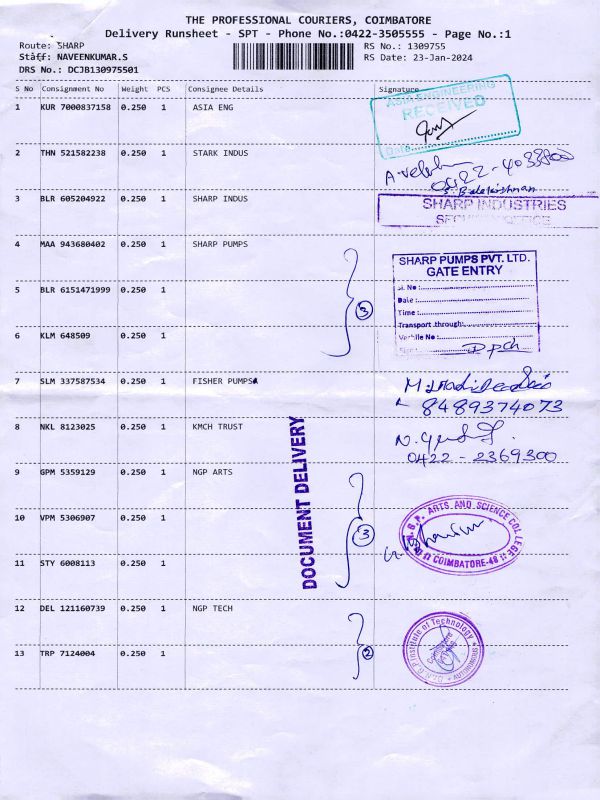 THE PROFESSIONAL COURIERS, COIMBATORE
Delivery Runsheet - SPT - Phone No.:0422-3505555 - Page No.:1
Route: SHARP
Staff: NAVEENKUMAR.S
DRS No.: DCJB130975501
RS No.: 1309755
RS Date: 23-Jan-2024
S No Consignment No Weight PCS Consignee Details Signature
1 KUR 7000837158 0.250 1 ASIA ENG
ASIA ENGINEERING
RECEIVED
Date
2 THN 521582238 0.250 1 STARK INDUS
0422-4033800
S. Balakrishnan
3 BLR 605204922 0.250 1 SHARP INDUS
SHARP INDUSTRIES
SECURITY OFFICE
4 MAA 943680402 0.250 1 SHARP PUMPS
SHARP PUMPS PVT. LTD.
GATE ENTRY
Sl. No :
Date :
Time :
Transport through:
Vechile No :
5 BLR 6151471999 0.250 1
3
6 KLM 648509 0.250 1
7 SLM 337587534 0.250 1 FISHER PUMPS
8489374073
8 NKL 8123025 0.250 1 KMCH TRUST
0422 - 2369300
DOCUMENT DELIVERY
9 GPM 5359129 0.250 1 NGP ARTS
10 VPM 5306907 0.250 1
3
N.G.P. ARTS AND SCIENCE COLLEGE
COIMBATORE-48
11 STY 6008113 0.250 1
12 DEL 121160739 0.250 1 NGP TECH
13 TRP 7124004 0.250 1
2
Institute of Technology
Coimbatore